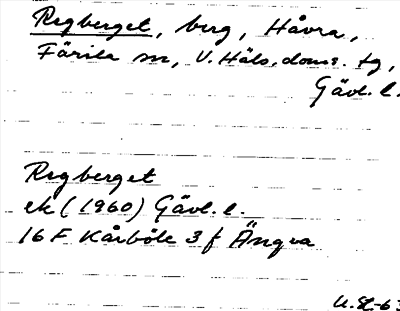 Regberget, berg, Håvra,
Färila sn, V. Häls. doms. tg,
Gävl. l.
Regberget
ek (1960) Gävl. l.
16 F Kårböle 3 f Ängra
U. St.-63